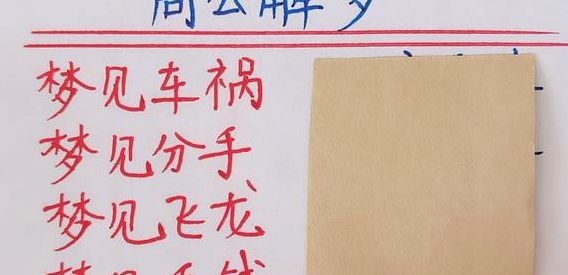 周公解梦
梦见车祸
梦见分手
梦见飞龙